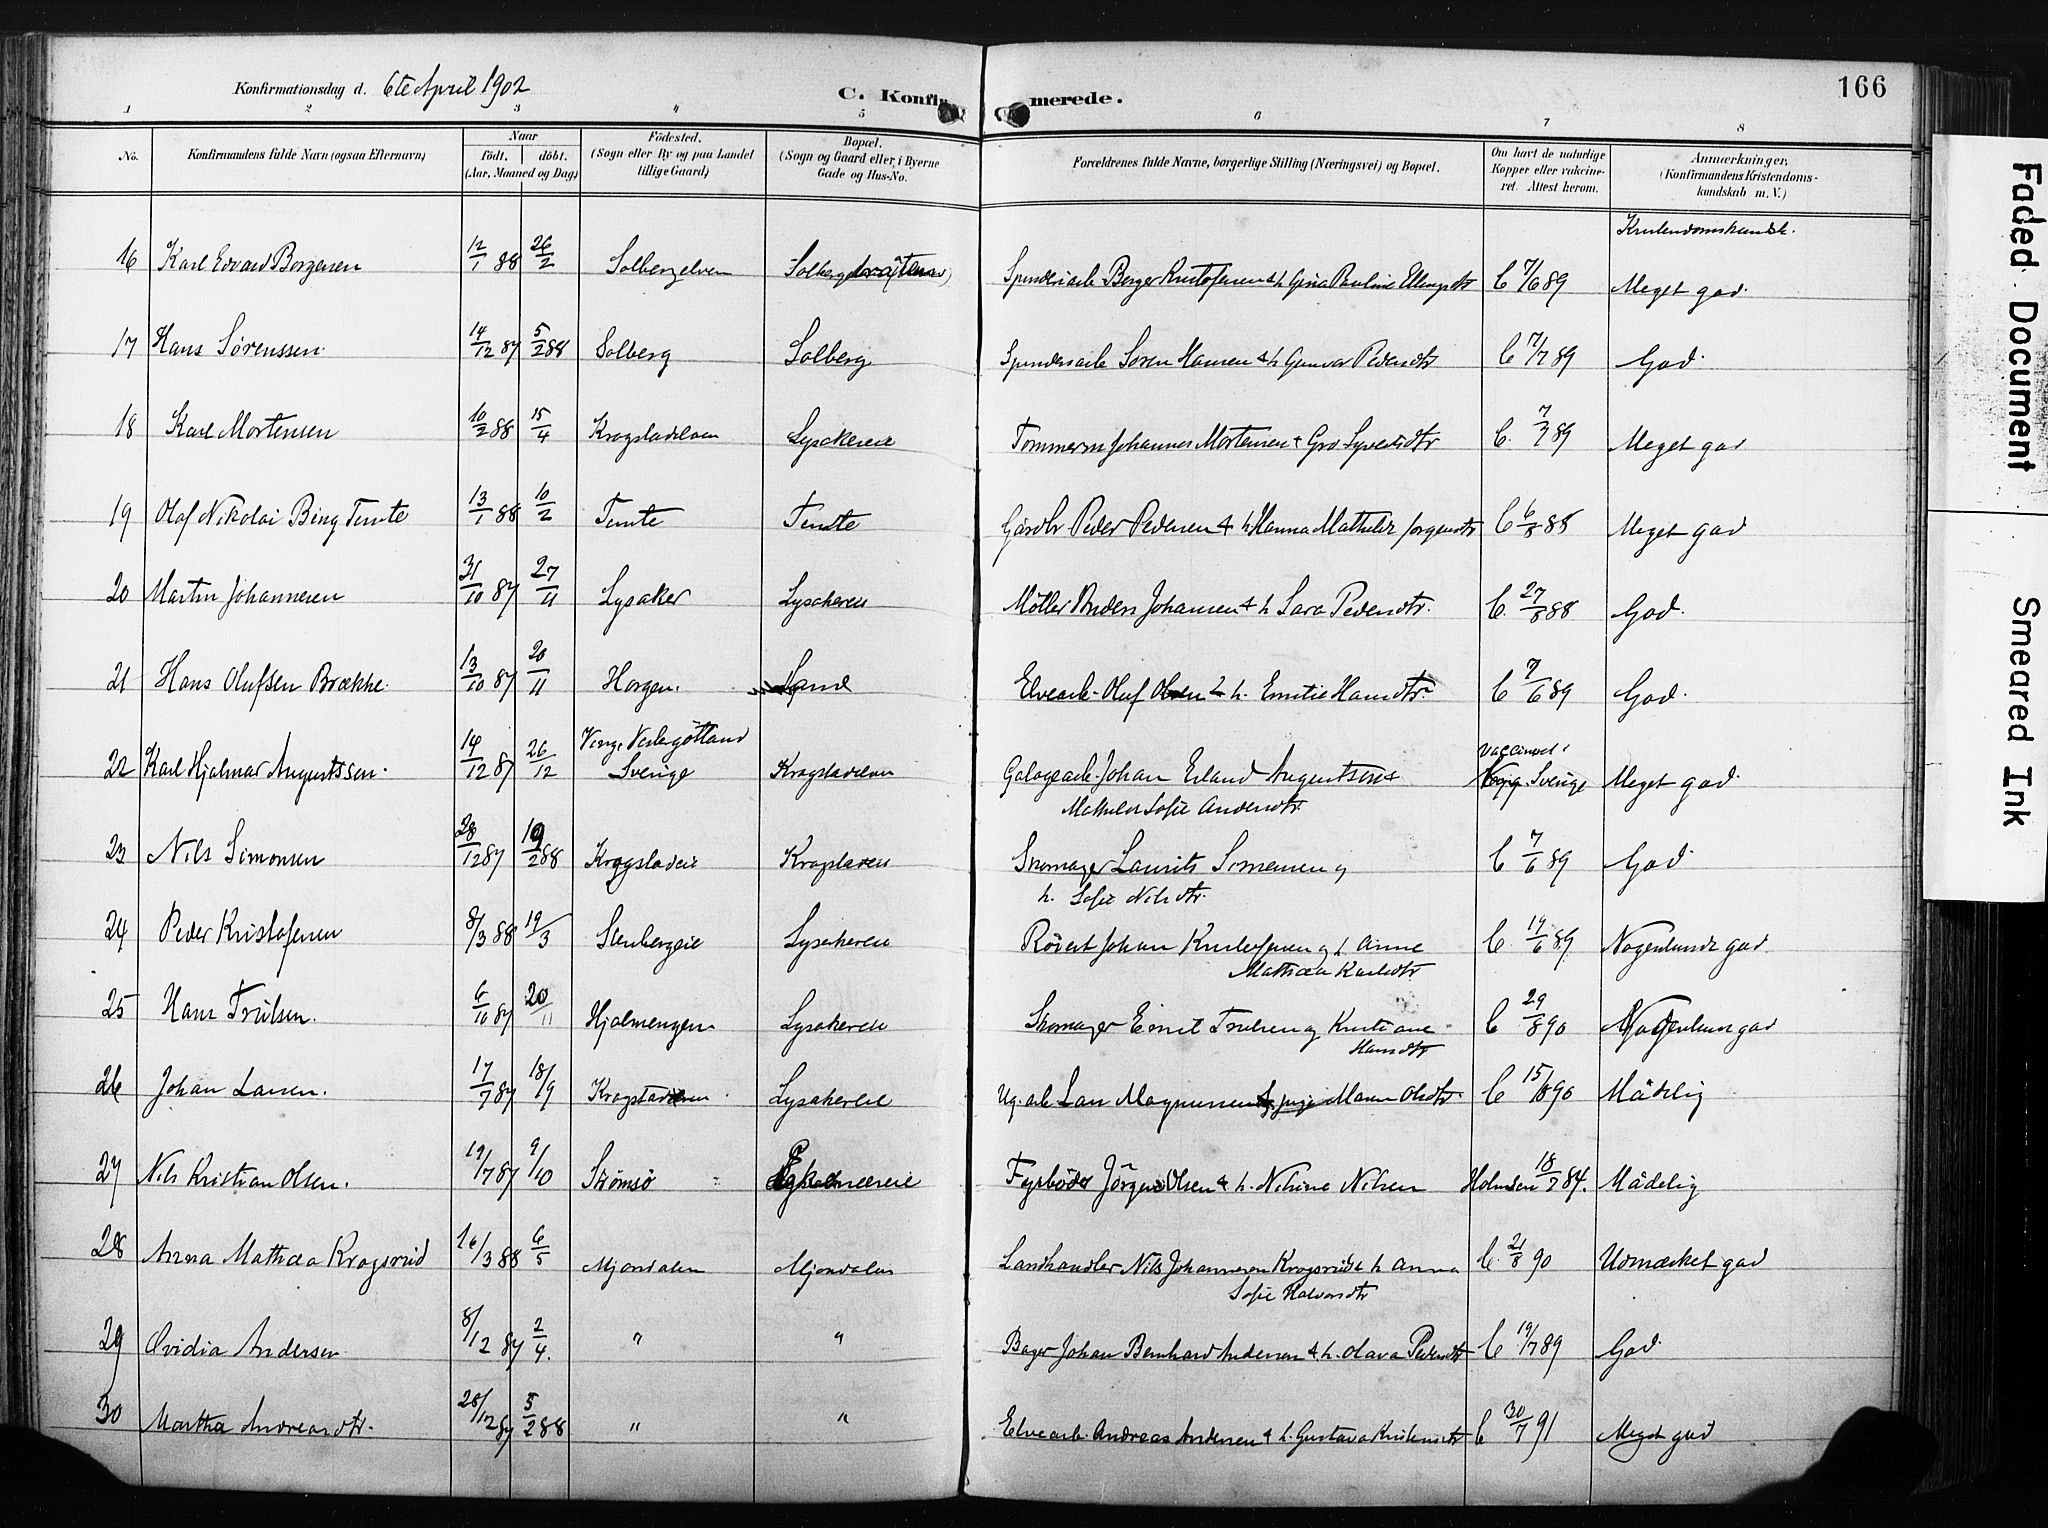 Konfirmationsdag d. 6te April 1902
C. Konfir merede. 166
1 2 3 4 5 6 7 8
No. Konfirmandens fulde Navn (ogsaa Efternavn) Naar født. døbt. (Aar, Maaned og Dag) Fødested. (Sogn eller By og paa Landet tillige Gaard) Bopæl. (Sogn og Gaard eller i Byerne Gade og Hus-No. Forældrenes fulde Navne, borgerlige Stilling (Næringsvei) og Bopæl. Om havt de naturlige Kopper eller vakcineret. Attest herom. Anmærkninger. (Konfirmandens Kristendomskundskab m. V.)
Kristendomskundsk.
16 Karl Edvard Borgersen 12/1 88 26/2 Solbergelven Borger Kristofersen & h. Gina Pauline C 7/6 89 Meget god
17 Hans Sørenssen 14/12 87 5/2 88 Solberg Solberg Søren Hansen & h. Gunvor Pedersdtr C 7/7 89 God
18 Karl Mortensen 10/2 88 15/4 Krogstadelven Lysakereie Tømmerm Johannes Mortensen & Gro C. 7/7 89 Meget god
19 Olaf Nikolai Bing Temte 13/1 88 10/2 Temte Temte Gårdbr Peder Pedersen & h Hanna Mathilde Jørgensdtr C 6/8 88 Meget god
20 Martin Johannesen 31/10 87 27/11 Lysaker Lysakereie Møller Anders Johansen & h Sara Pedersdtr. C. 27/8 88 God.
21 Hans Olufsen Brække. 13/10 87 20/11 Horgen. Elvearb. Oluf Olsen & h. Emilie Hansdtr. C 7/6 89 God.
22 Karl Hjalmar Augustssen. 14/12 87 26/12 Vestergøtland Sverige Krogstadelven Johan Erland Augustsen & Mathilde Sofie Andersdtr. Vaccineret i Sverige Meget god
23 Nils Simonsen 28/12 87 19/2 88 Krogstadeie Krogstadeie Skomager Laurits Simensen og h. Sofie Nilsdtr. C 7/6 89 God
24 Peder Kristofersen 8/3 88 19/3 Stenbergeie Lysakereie Johan Kristofersen og h. Anne Mathæa Karlsdtr C. 19/6 89 Nogenlunde god
25 Hans Trulsen. 6/10 87 20/11 Hjalmengen Lysakereie Skomager Emil Trulsen og Kristiane Hansdtr C 29/8 90 Nogenlun god
26 Johan Larsen. 17/7 87 18/9 Krogstadelven Lysakereie Lars Magnussen Maren Olsdtr C 15/8 90 Mådelig
27 Nils Kristian Olsen. 19/7 87 9/10 Strømsø Fyrbøder Jørgen Olsen & h. Nilsine Nilsen Holmsen 18/7 84. Mådelig
28 Anna Mathæa Krogsrud 16/3 88 6/5 Mjøndalen Mjøndalen Landhandler Nils Johannesen Krogsrud & h Anna Sofie Halvorsdtr C. 21/8 90 Udmærket god
29 Ovidia Andersen 8/12 87 2/4. " " Bager Johan Bernhard Andersen & h. Olava Pedersdtr C 19/7 89 God
30 Martha Andreasdtr. 28/12 87 5/2 88 " " Elvearb. Andreas Andersen & h. Gustava Kristensdtr C 30/7 91 Meget god
Faded Document
Smeared Ink